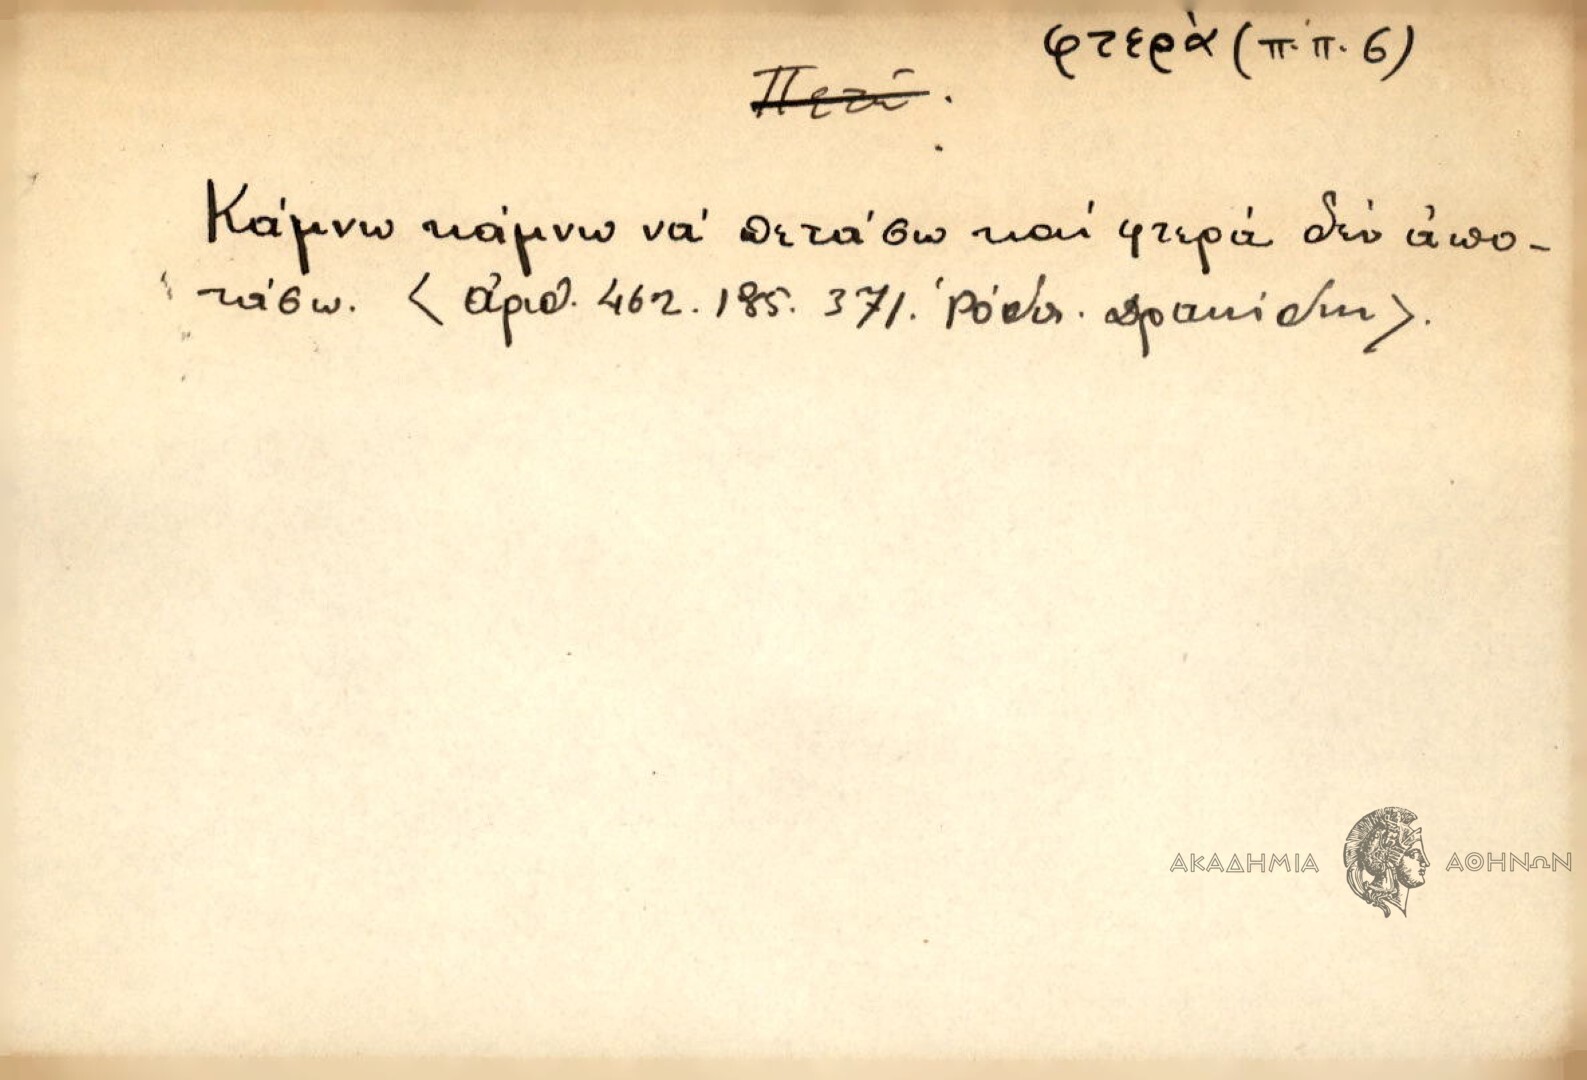 φτερὰ (π.π. 6)
Πετῶ.
Κάμνω κάμνω νά πετάσω καί φτερά δέν ἀπο-
τάσω. < ἀριθ. 462. 185. 371. Ῥόδος. Δρακίδης >.
ΑΚΑΔΗΜΙΑ ΑΘΗΝΩΝ